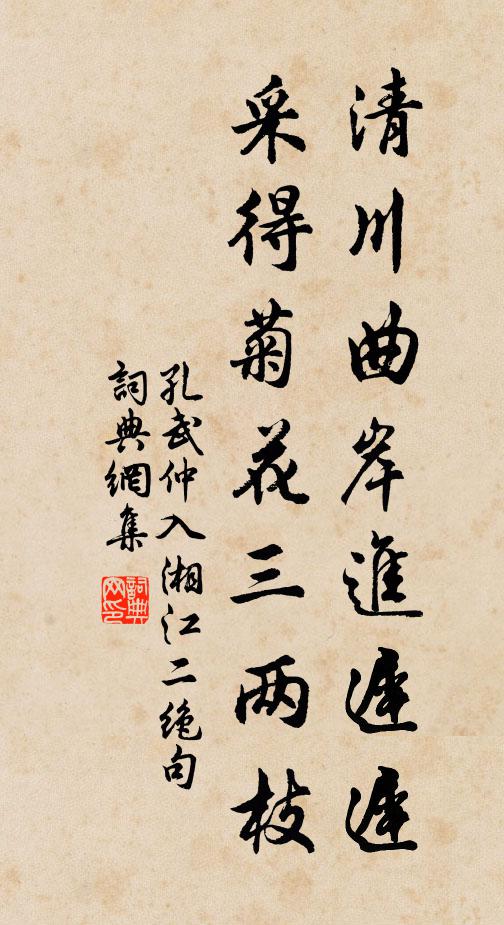 清川曲岸進遲遲
采得菊花三两枝
孔武仲入湘江二绝句
詞典網集
詞典网印